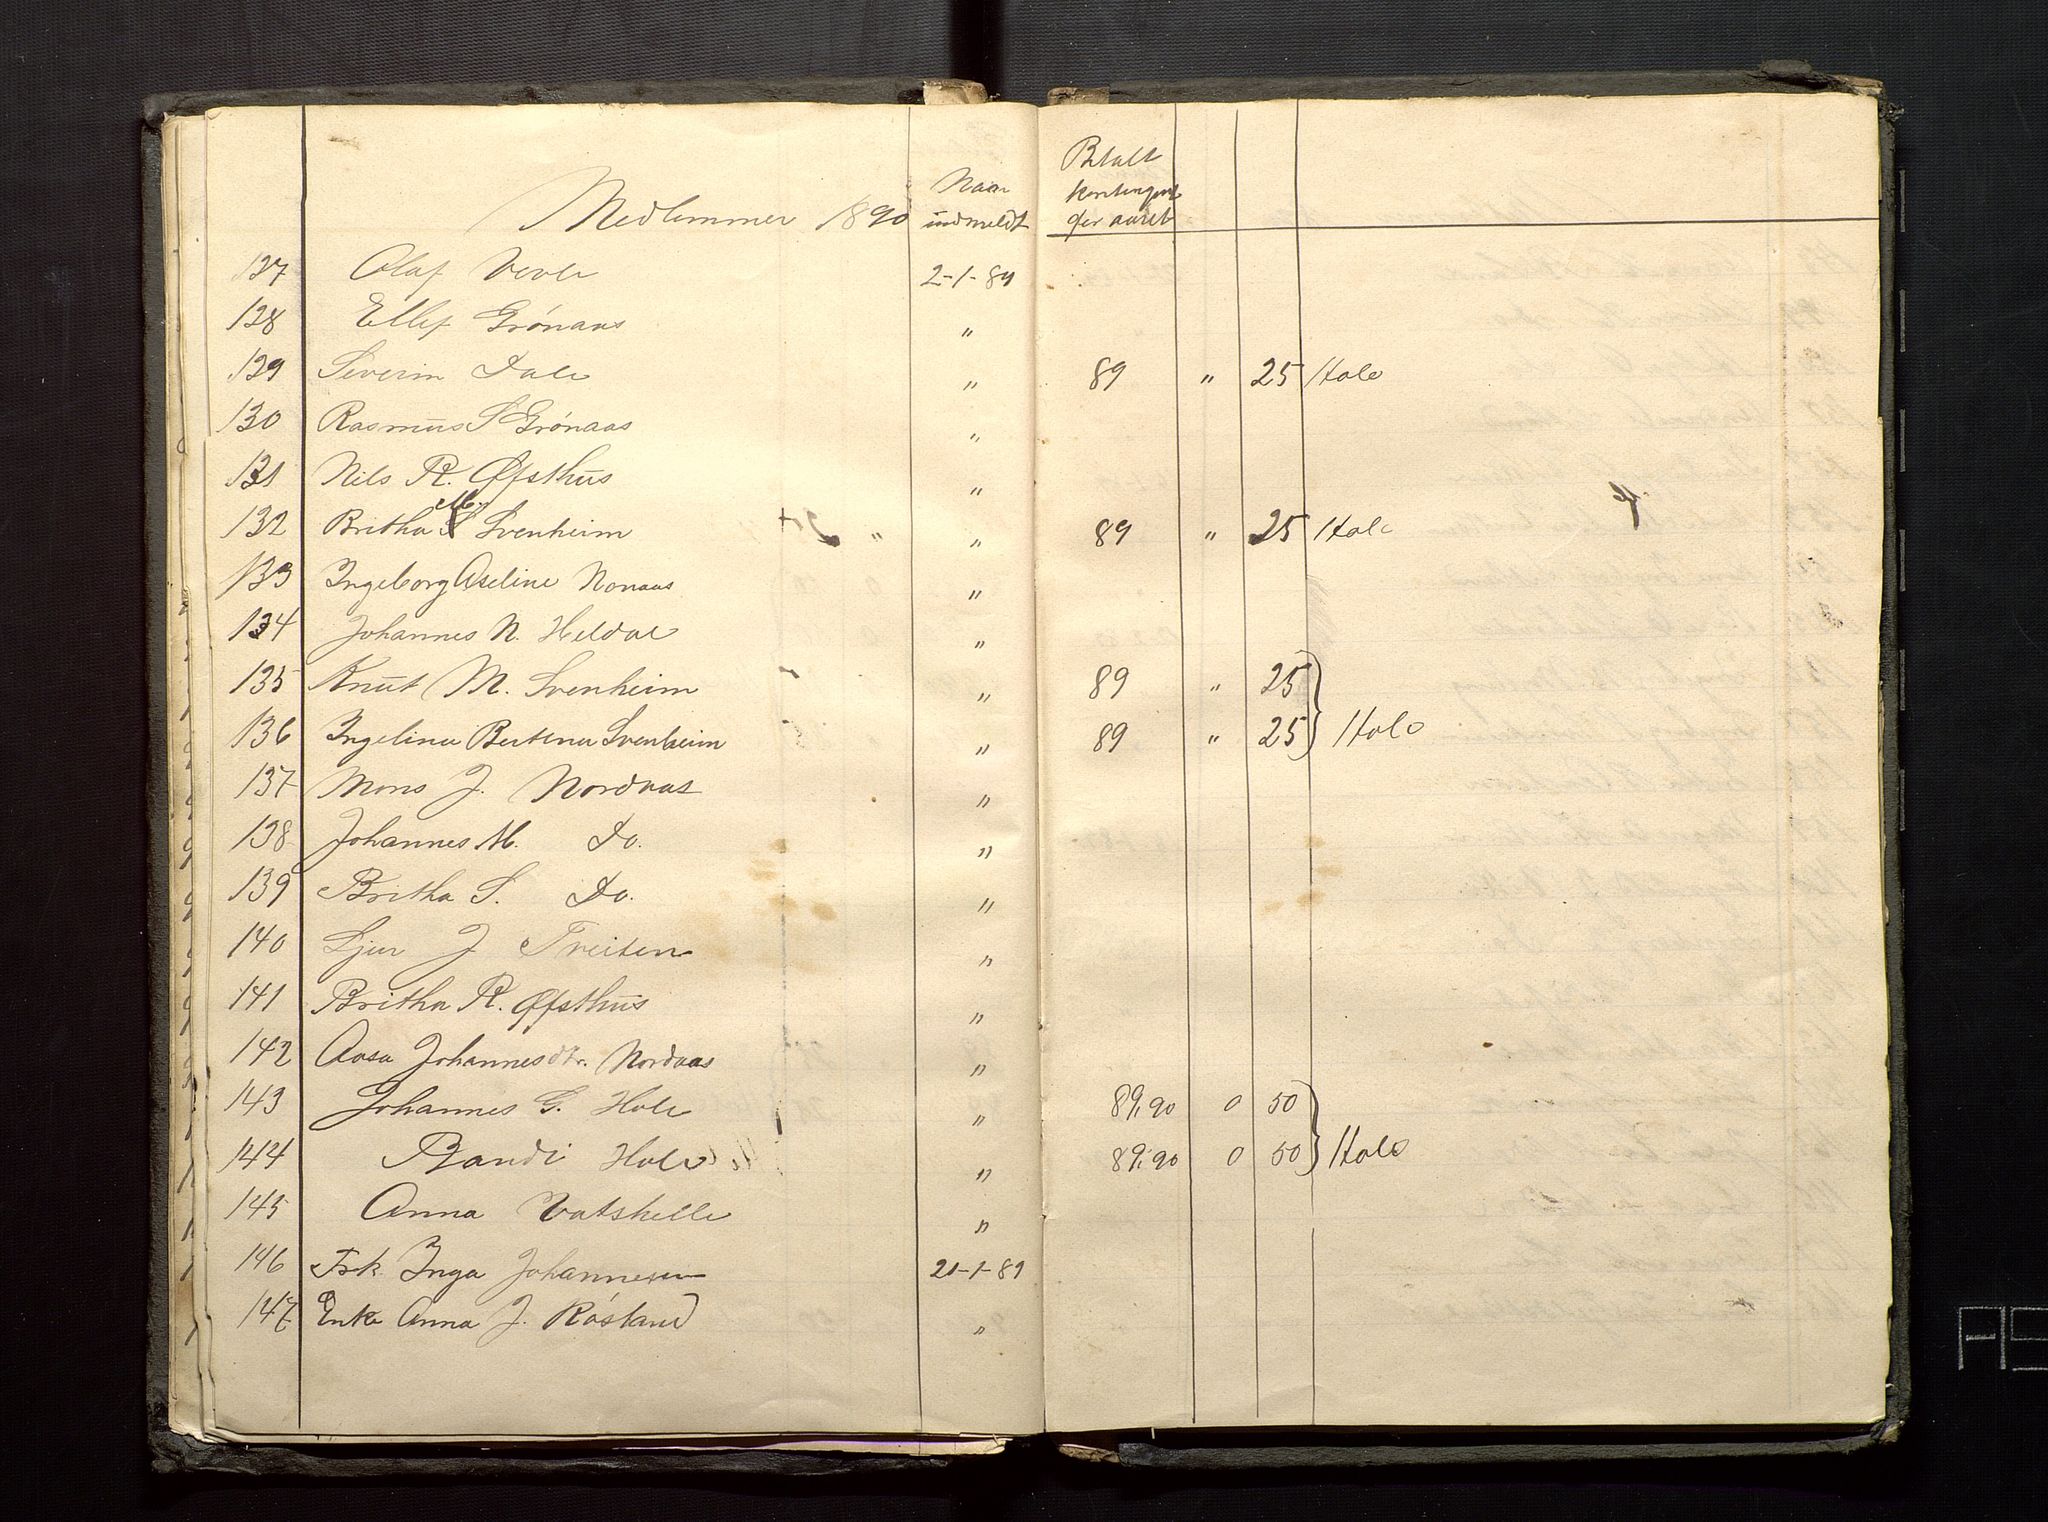 Medlemmer 1890 Naar indmeldt Betalt kontingent for aaret
127 Olaf 2-1-89
128 Ellef Grónaas "
129 Severin Dale " 89 " 25 Hole
130 Rasmus S Grónaas "
131 Nils R. Øfsthus "
132 Britha M. Svenheim " " 89 " 25 Hole
133 Ingeborg Aseline Nonaas "
134 Johannes N. Heldal "
135 Knut M. Svenheim " 89 " 25
136 Ingelina Bertina Svenheim " 89 " 25 Hole
137 Mons J. Nordaas "
138 Johannes M. Do. "
139 Britha S. Do. "
140 Sjur J Treiten "
141 Britha R. Øfsthus "
142 Aasa Johannesdtr. Nordaas "
143 Johannes G. Hole " 89,90 0 50
144 Randi Hole " 89,90 0 50 Hole
145 Anna Vatshelle "
146 Frk. Inga Johannesen 21-1-89
147 Enke Anna J. Røsland "